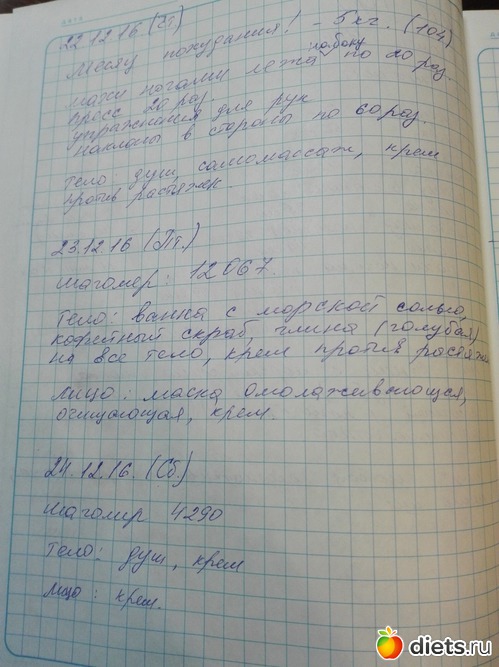 дата
22.12.16 (Чт)
Месяц похудания! - 5 кг. (104)
махи ногами лежа на боку по 20 раз.
пресс 20 раз
упражнения для рук
наклоны в стороны по 60 раз.
Тело: душ, самомассаж, крем
против растяжек.
23.12.16 (Пт.)
Шагомер: 12067.
Тело: ванна с морской солью,
кофейный скраб, глина (голубая)
на все тело, крем против растяж
Лицо: маска омолаживающая,
очищающая, крем.
24.12.16. (Сб.)
Шагомер 4290
Тело: душ, крем
Лицо: крем.
diets.ru